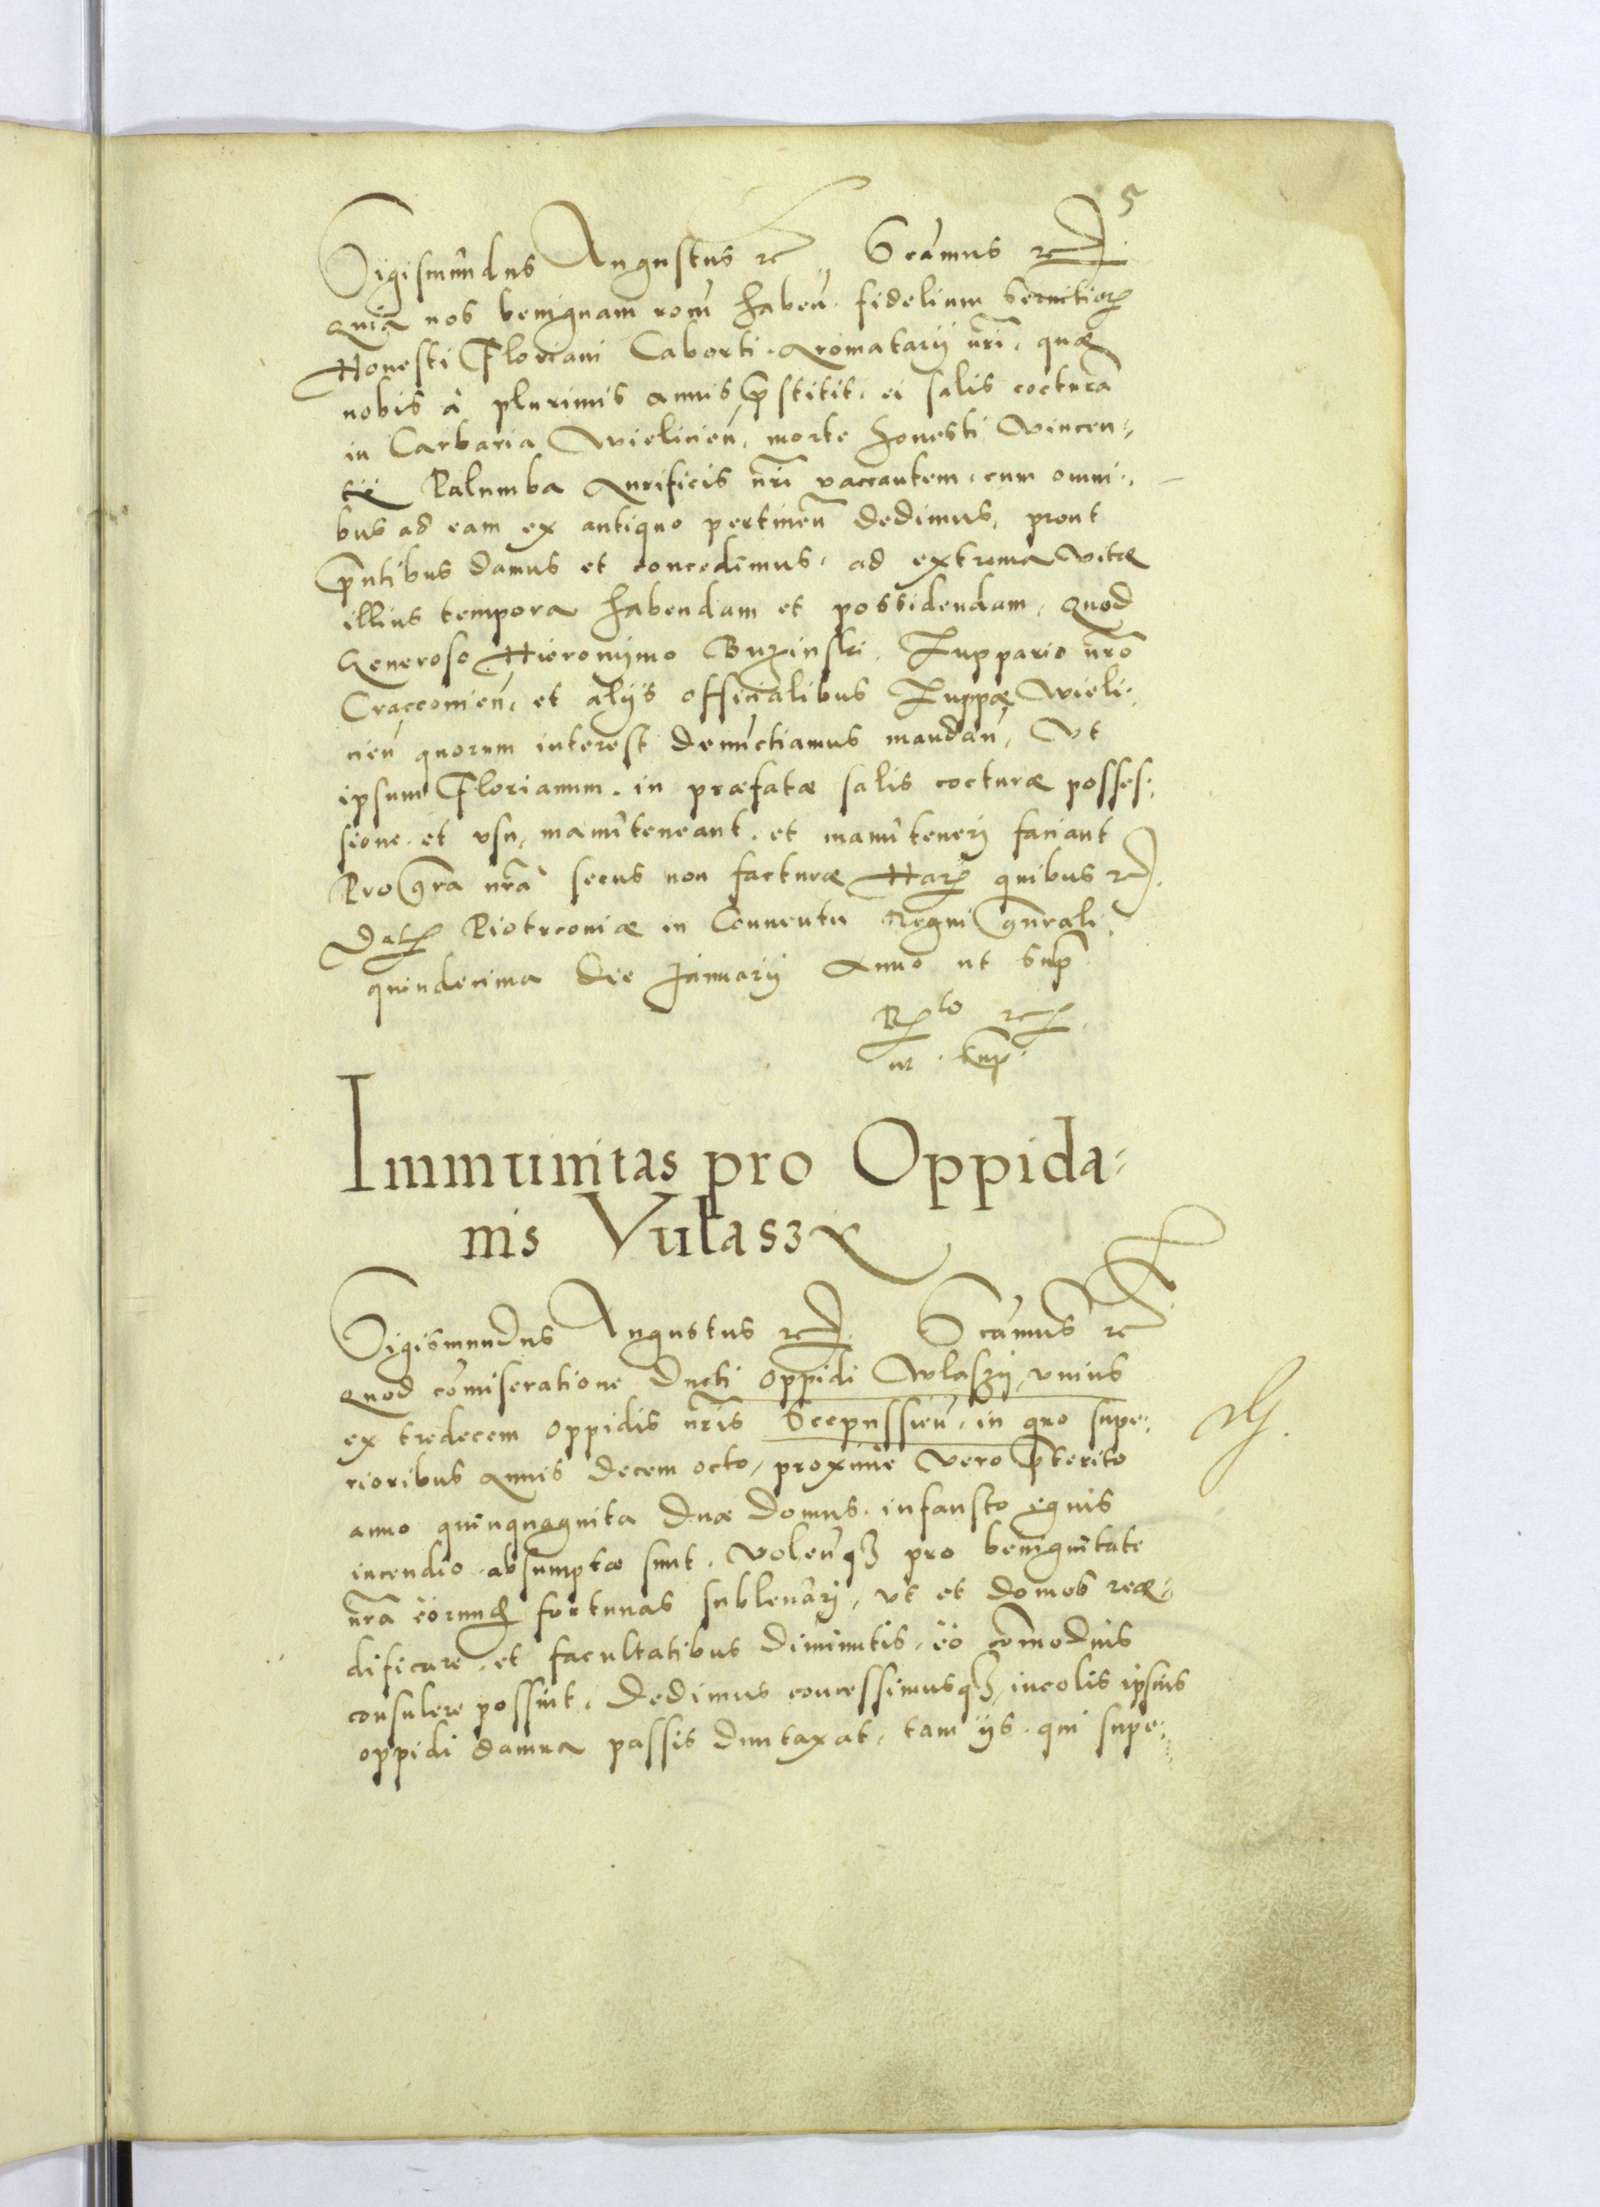 5
Sigismundus Augustus etc Scamus etc
Quia nos benignam rom haben fidelium servitior
Honesti Floriani Caborti Aromatarij nri, quæ
nobis à plurimis annis pstitit, ei salis cocturã
in Carbaria Wielicien, morte honesti Vincen,,
tij Palumba Aurificis nri vaccantem, cum omni,,
bus ad eam ex antiquo pertinen dedimus, prout
pntibus damus et concedimus, ad extrema vitæ
illius tempora habendam et possidendam, Quod
Generoso Hieronymo Buzinski, Zuppario nro
Craccovien, et alijs officialibus Zuppæ Wieli,
cien quorum interest denunctiamus mandan, Ut
ipsum Florianum, in præfatæ salis cocturæ posses,
sione, et vsu, manuteneant, et manuteneri faciant
Pro gra nra secus non facturæ Har quibus etc.
Dat Piotrcoviæ in Conventu Regni gnrali
quindecima die Januarij Anno ut sup
R to etc
ut sup
Immunitas pro Oppida=
nis Vulaszy
Sigismundus Augustus etc Scamus etc
Quod comiseratione ducti oppidi Wlaszij, vnius
ex tredecem oppidis nris Scepussien, in quo supe,
rioribus annis decem octo, proximè vero pterito
anno quinquaginta duæ domus, infausto ignis
incendio absumptæ sunt, Volenq3 pro benignitate
nra eorum fortunas sublevari, vt et domos reæ,,
dificare, et facultatibus diminutis, eo comodius
consulere possint, Dedimus concessimusq3 incolis ipsius
oppidi damna passis duntaxat, tam ijs qui supe,